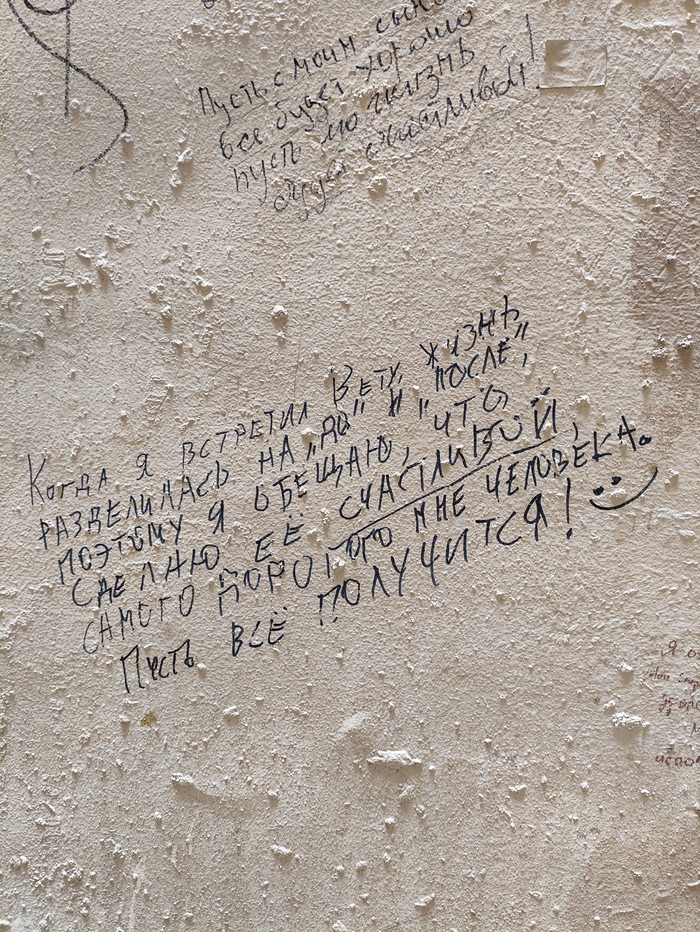 Пусть с моим сыном
все будет хорошо
пусть его жизнь
будет счастливой!
Когда я встретил Вету, жизнь
разделилась на „до“ и „после“,
поэтому я обещаю, что
сделаю её счастливой,
самого дорогого мне человека.
Пусть всё получится! :)